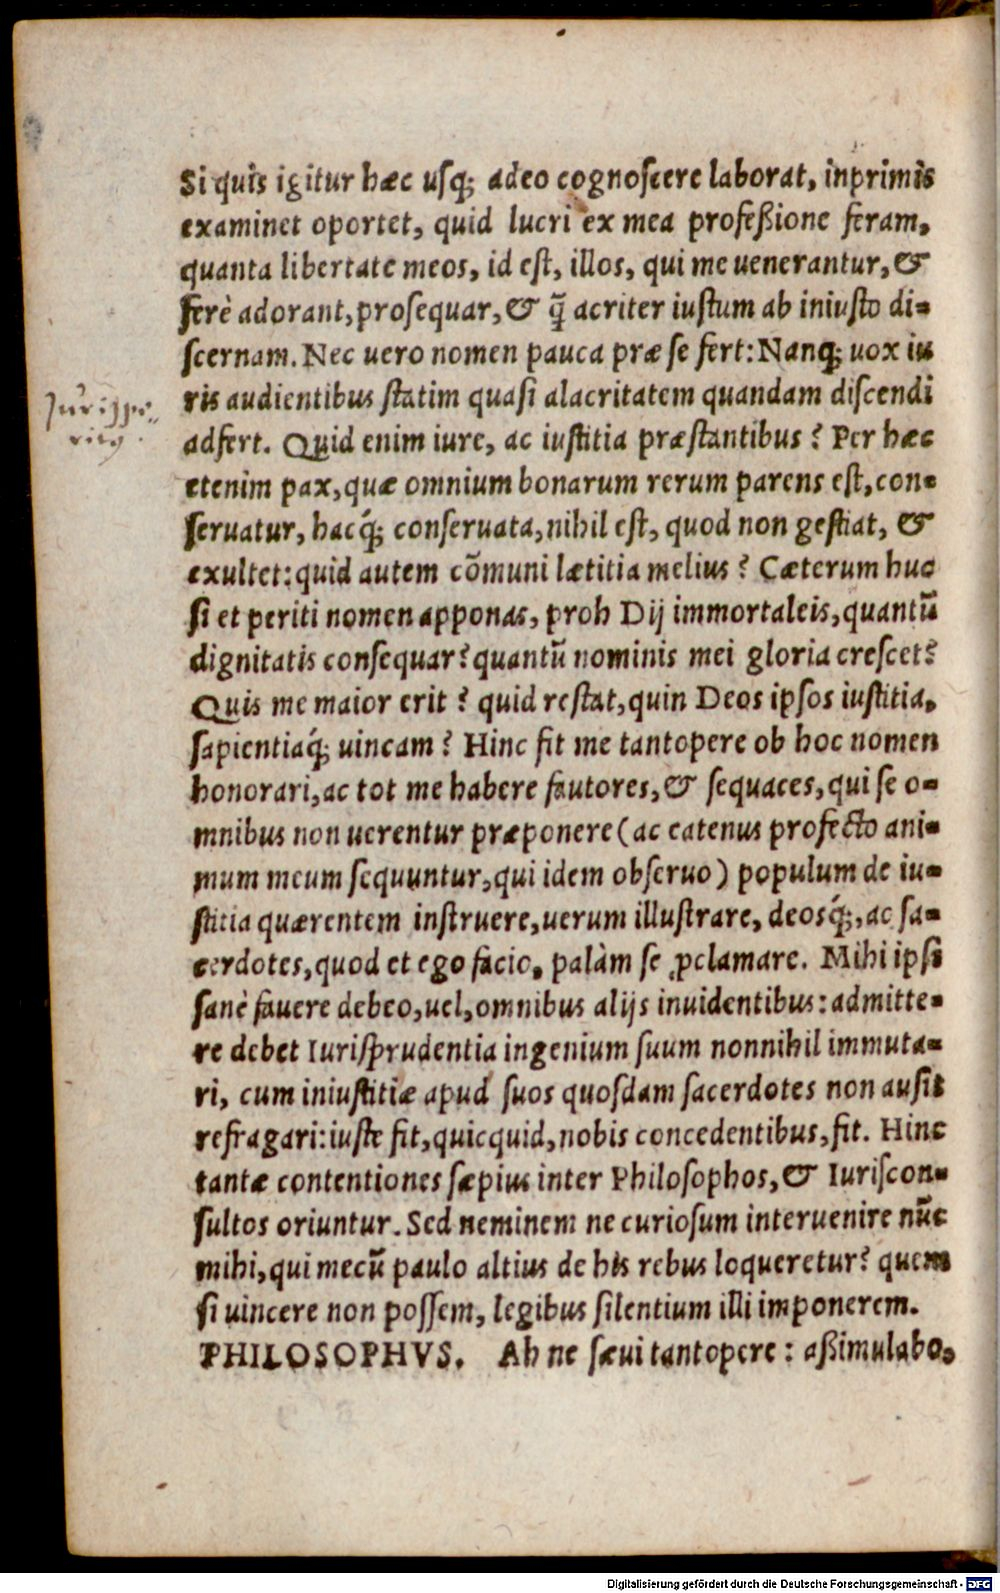 Si quis igitur hæc usq; adeo cognoscere laborat, inprimis
examinet oportet, quid lucri ex mea profeßione feram,
quanta libertate meos, id est, illos, qui me uenerantur, &
ferè adorant, prosequar, & q̃ acriter iustum ab iniusto di-
scernam. Nec uero nomen pauca præ se fert: Nanq; uox iu
ris audientibus statim quasi alacritatem quandam discendi
adfert. Quid enim iure, ac iustitia præstantibus? Per hæc
etenim pax, quæ omnium bonarum rerum parens est, con-
seruatur, hacq́; conseruata, nihil est, quod non gestiat, &
exultet: quid autem cõmuni lætitia melius? Cæterum huc
si et periti nomen apponas, proh Dij immortaleis, quantũ
dignitatis consequar? quantũ nominis mei gloria crescet?
Quis me maior erit? quid restat, quin Deos ipsos iustitia,
sapientiaq́; uincam? Hinc fit me tantopere ob hoc nomen
honorari, ac tot me habere fautores, & sequaces, qui se o-
mnibus non uerentur præponere (ac eatenus profecto ani-
mum meum sequuntur, qui idem obseruo) populum de iu-
stitia quærentem instruere, uerum illustrare, deosq́;, ac sa-
cerdotes, quod et ego facio, palàm se ꝓclamare. Mihi ipsi
sanè fauere debeo, uel, omnibus alijs inuidentibus: admitte-
re debet Iurisprudentia ingenium suum nonnihil immuta-
ri, cum iniustitiæ apud suos quosdam sacerdotes non ausit
refragari: iuste fit, quicquid, nobis concedentibus, fit. Hinc
tantæ contentiones sæpius inter Philosophos, & Iuriscon-
sultos oriuntur. Sed neminem ne curiosum interuenire nũc
mihi, qui mecũ paulo altius de his rebus loqueretur? quem
si uincere non possem, legibus silentium illi imponerem.
PHILOSOPHVS. Ah ne sæui tantopere: aßimulabo,
Digitalisierung gefördert durch die Deutsche Forschungsgemeinschaft - DFG